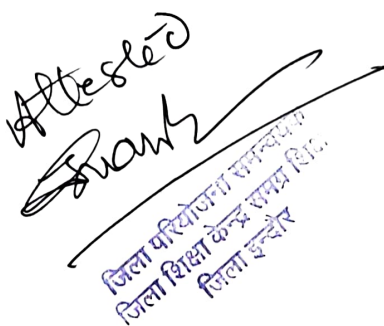 Attested
जिला परियोजना समन्वयक
जिला शिक्षा केन्द्र समग्र शि.
जिला इन्दौर